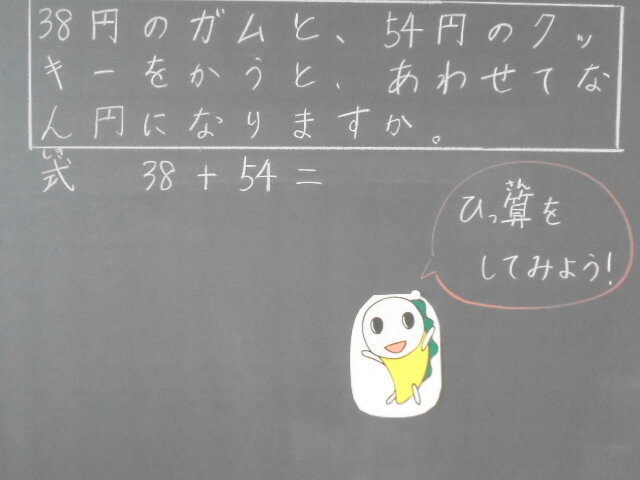 38円のガムと、54円のクッ
キーをかうと、あわせてな
ん円になりますか。
しき
式 38+54=
さん
ひっ算を
してみよう!